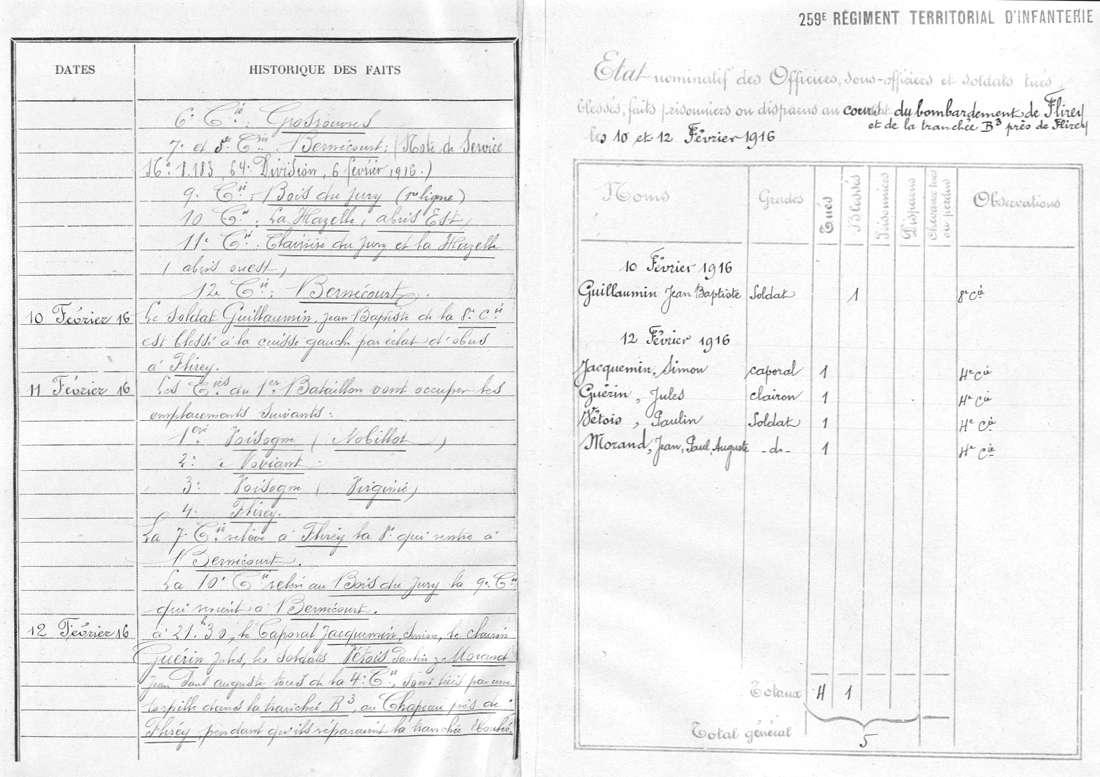 DATES
HISTORIQUE DES FAITS
6e Cie Grosrouvres
7e et 8e Cies Bernécourt; (Note de Service
No 1.183 64e Division, 6 février 1916.)
9e Cie: Bois du Jury (1re ligne)
10e Cie: La Hazelle, abris Est,
11e Cie: Clairière du Jury et la Hazelle
(abris ouest,
12e Cie: Bernécourt.
10 Février 16
Le Soldat Guillaumin, Jean Baptiste de la 8e Cie
est blessé à la cuisse gauche par éclat d'obus
à Flirey.
11 Février 16
Les Cies du 1er Bataillon vont occuper les
emplacements suivants:
1ere Voisogne (Nobillot)
2e : Noviant
3e Voisogne (Virginie)
4e Flirey.
La 7e Cie relève à Flirey la 8e qui rentre à
Bernécourt.
La 10e Cie au Bois du Jury la 9e Cie
qui à Bernécourt.
12 Février 16
à 21h30, le Caporal Jacquemin, Simon, le clairon
Guérin Jules, les soldats Vétois Paulin, Morand
Jean Paul Auguste tous de la 4e Cie, sont tués par une
torpille dans la tranchée B3, au Chapeau près de
Flirey, pendant qu'ils réparaient la tranchée
259E RÉGIMENT TERRITORIAL D'INFANTERIE
Etat nominatif des Officiers, sous-officiers et soldats tués
blessés, faits prisonniers ou disparus au cours du bombardement de Flirey
et de la tranchée B3 près de Flirey
les 10 et 12 Février 1916
Noms
Grades
Tués
Blessés
Prisonniers
Disparus
Chevaux tués
ou perdus
Observations
10 Février 1916
Guillaumin Jean Baptiste Soldat 1 8e Cie
12 Février 1916
Jacquemin, Simon caporal 1 4e Cie
Guérin, Jules clairon 1 4e Cie
Vétois, Paulin Soldat 1 4e Cie
Morand, Jean, Paul, Auguste -d- 1 4e Cie
Totaux 4 1
Total général 5